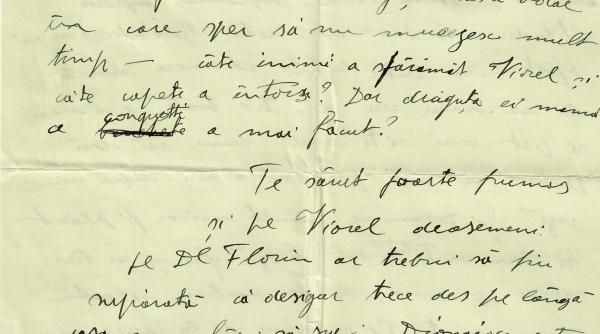 în care sper să nu mucezesc mult
timp — câte inimi a sfărâmat Viorel și
câte capete a întors? Dar drăguța ei mamă
ce conquetti a mai făcut?
Te sărut foarte frumos
și pe Viorel deasemeni
pe Dl Florin ar trebui să fiu
supărată că desigur trece des pe lângă